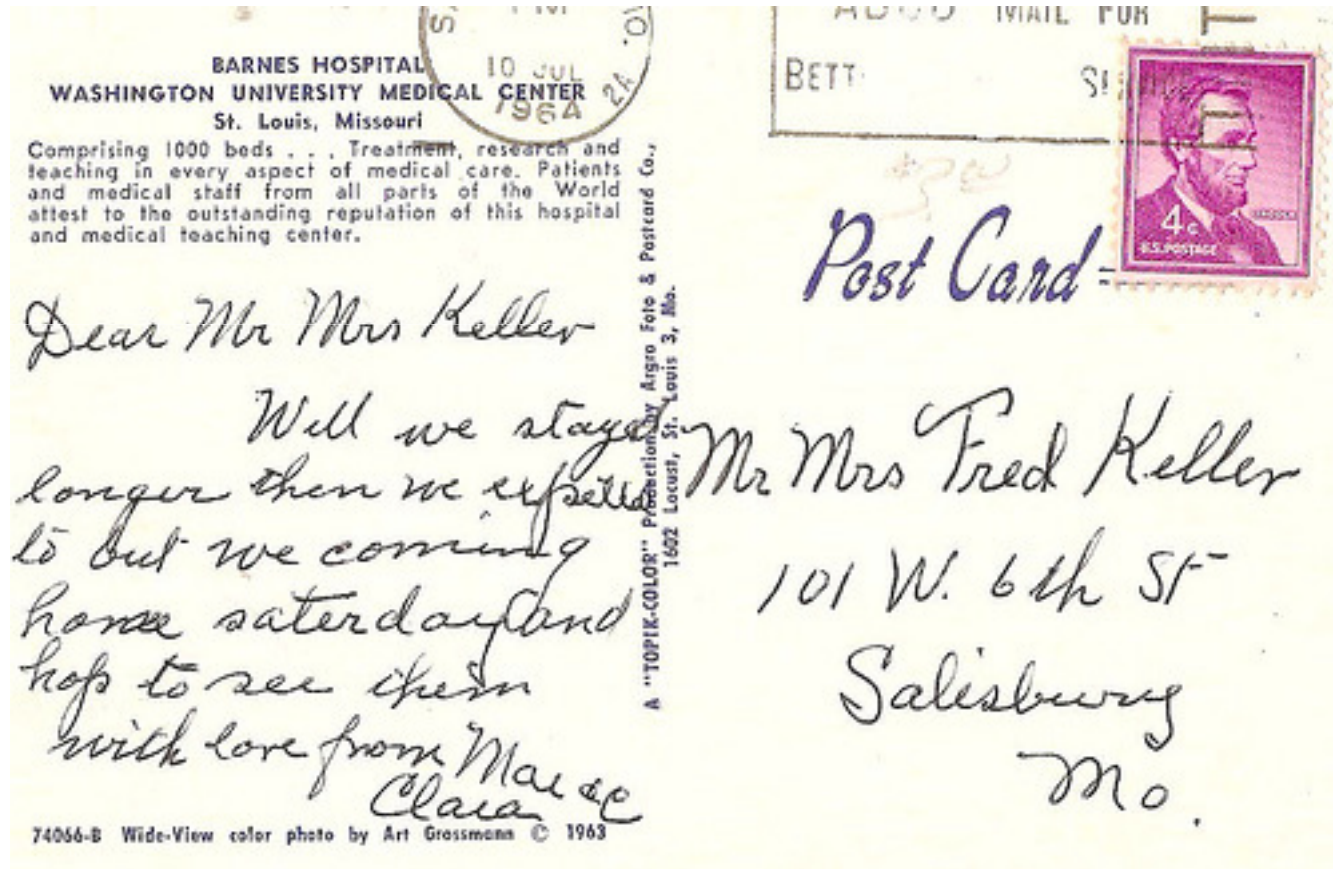 BARNES HOSPITAL
WASHINGTON UNIVERSITY MEDICAL CENTER
St. Louis, Missouri
Comprising 1000 beds . . . Treatment, research and
teaching in every aspect of medical care. Patients
and medical staff from all parts of the World
attest to the outstanding reputation of this hospital
and medical teaching center.
Dear Mr Mrs Keller
Well we stayed
longer then we
to but we coming
home saterday and
hop to see them
with love from
Clara
74066-B Wide-View color photo by Art Grossmann © 1963
A "TOPIK-COLOR" Production by Argro Foto & Postcard Co.,
1602 Locust, St. Louis 3, Mo.
PM
10 JUL
1964
MAIL FOR
BETT
4¢
U.S. POSTAGE
LINCOLN
Post Card
Mr Mrs Fred Keller
101 W. 6th St
Salisbury
Mo.